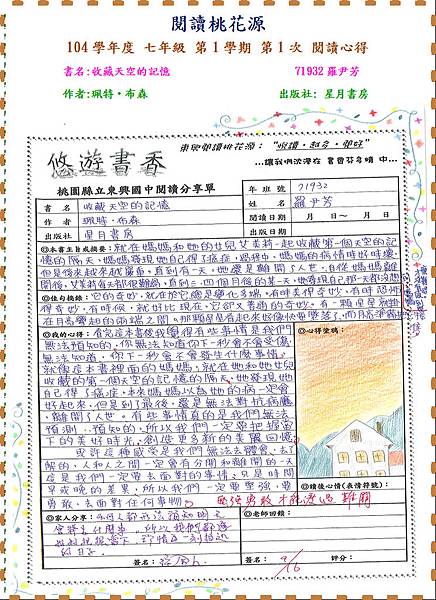 閱讀桃花源
104 學年度 七年級 第 1 學期 第 1 次 閱讀心得
書名:收藏天空的記憶 71932 羅尹芳
作者:珮特‧布森 出版社: 星月書房
東興閱讀桃花源：
…讓我們沈浸在 書香芬多精 中…
悠遊書香
桃園縣立東興國中閱讀分享單
年 班 號 71932
書 名 收藏天空的記憶
姓 名 羅尹芳
作 者 珮特.布森
閱讀日期 月 日～ 月 日
出版社 星月書房
出版日期 年 月
◎本書主旨或摘要：就在媽媽和她的女兒艾茉莉一起收藏第一個天空的記
憶的隔天，媽媽發現她自己得了癌症，過程中，媽媽的病情時好時壞，
但是後來越來越嚴重，直到有一天，她還是離開了人世，自從媽媽離
開後，艾茉莉每天都很難過，直到三、四個月後的某一天，她發現自己
◎佳句摘錄：它的奇妙，就在於它總是變化多端，有時美得奇妙，有時恐怖
得奇妙，有時候，就好比現在，它卻又普通的奇妙。有一顆星星就掛
在月亮彎起的兩端之間。那顆星星看起來好像快要墜落，而月亮
◎我的心得：看完這本書後我覺得有些事情是我們
無法預知的，你無法知道你下一秒會不會受傷，
無法知道，你下一秒會不會發生什麼事情，
就像這本書裡面的媽媽，就在她和她女兒
收藏的第一個天空的記憶的隔天，她發現她
自己得了癌症，本來媽媽以為她的病一定會
好起來，但是到了最後，還是無法對抗病魔，
離開了人世。有些事情真的是我們無法
預測、預知的，所以我們一定要把握當
下的美好時光，創造更多新的美麗回憶。
也許這種感受是我們無法體會、去了
解的，人和人之間一定會有分開和離開的，不
管是我們一定要去面對的事情，只是時間
早或晚的差異，所以我們一定要堅強，要
勇敢，去面對任何事物。
◎心得塗鴉：
◎閱讀後心情(表情符號)：
◎家人分享：
◎老師回饋：
簽名：
簽名：
評分：